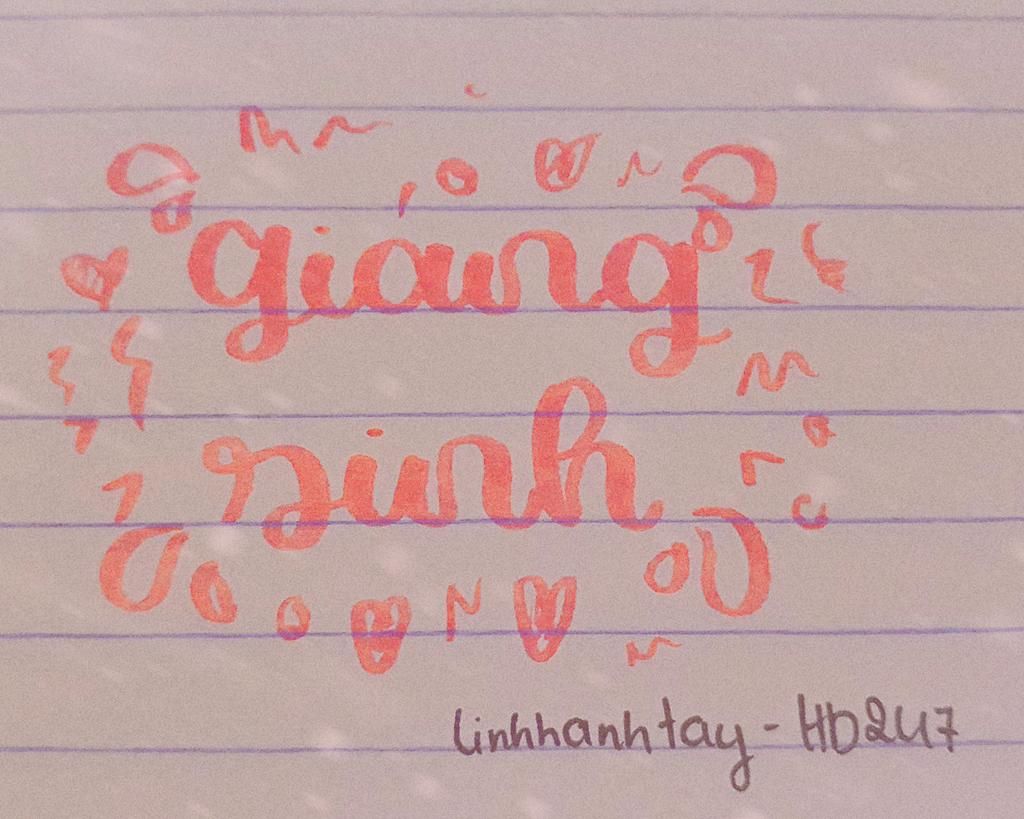 giáng
sinh
linhhanhtay - HD247